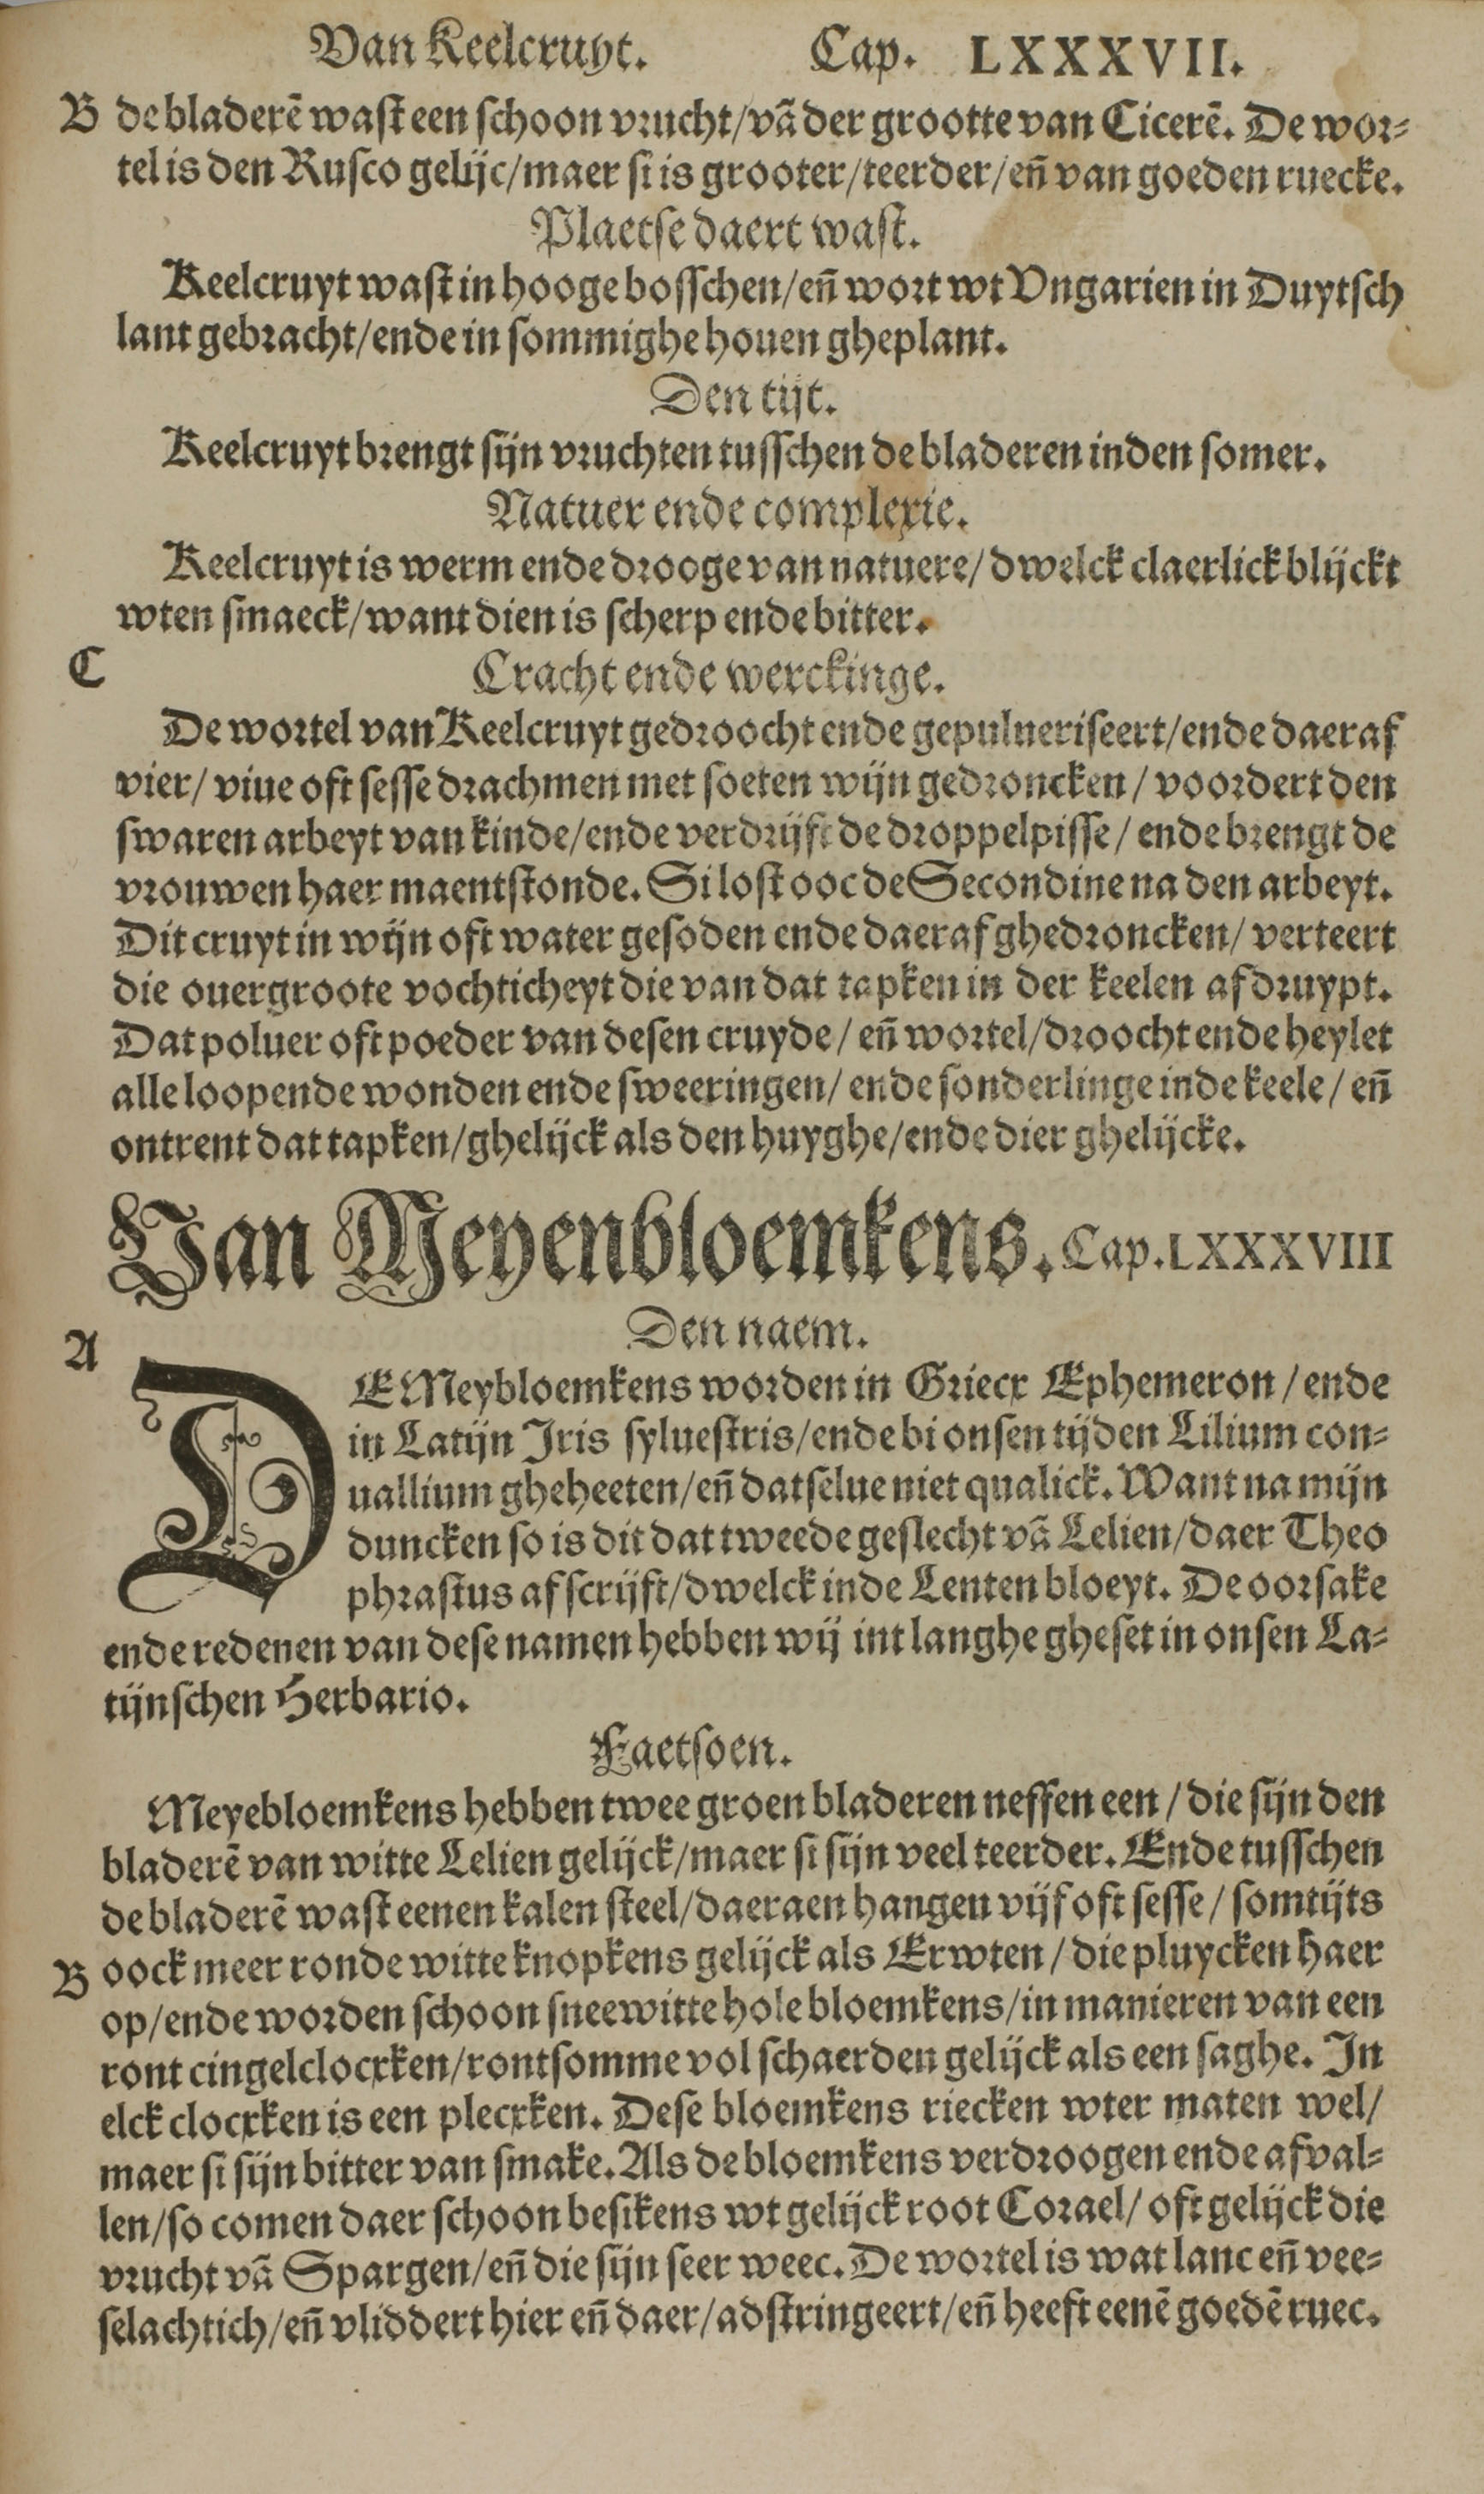 Van Keelcruyt. Cap. LXXXVII.
B de bladerē wast een schoon vrucht/vā der grootte van Cicerē. De wor-
tel is den Rusco gelijc/maer si is grooter/teerder/eñ van goeden ruecke.
Plaetse daert wast.
Keelcruyt wast in hooge bosschen/eñ wort wt Vngarien in Duytsch
lant gebracht/ende in sommighe houen gheplant.
Den tijt.
Keelcruyt brengt sijn vruchten tusschen de bladeren inden somer.
Natuer ende complexie.
Keelcruyt is werm ende drooge van natuere/dwelck claerlick blijckt
wten smaeck/want dien is scherp ende bitter.
C
Cracht ende werckinge.
De wortel van Keelcruyt gedroocht ende gepulueriseert/ende daer af
vier/ viue oft sesse drachmen met soeten wijn gedroncken/ voordert den
swaren arbeyt van kinde/ende verdrijft de droppelpisse/ ende brengt de
vrouwen haer maentstonde. Si lost ooc de Secondine na den arbeyt.
Dit cruyt in wijn oft water gesoden ende daer af ghedroncken/ verteert
die ouergroote vochticheyt die van dat tapken in der keelen af druypt.
Dat poluer oft poeder van desen cruyde/ eñ wortel/droocht ende heylet
alle loopende wonden ende sweeringen/ ende sonderlinge inde keele/ eñ
ontrent dat tapken/ghelijck als den huyghe/ende dier ghelijcke.
Van Meyenbloemkens. Cap. LXXXVIII
Den naem.
A
DE Meybloemkens worden in Griecx Ephemeron/ende
in Latijn Iris syluestris/ende bi onsen tijden Lilium con-
uallium gheheeten/eñ dat selue niet qualick. Want na mijn
duncken so is dit dat tweede geslecht vā Lelien/daer Theo
phrastus af scrijft/dwelck inde Lenten bloeyt. De oorsake
ende redenen van dese namen hebben wij int langhe gheset in onsen La-
tijnschen Herbario.
Faetsoen.
Meyebloemkens hebben twee groen bladeren neffen een/die sijn den
bladerē van witte Lelien gelijck/maer si sijn veel teerder. Ende tusschen
de bladerē wast eenen kalen steel/daer aen hangen vijf oft sesse/ somtijts
B oock meer ronde witte knopkens gelijck als Erwten/ die pluycken haer
op/ende worden schoon sneewitte hole bloemkens/in manieren van een
ront cingelclocxken/rontsomme vol schaerden gelijck als een saghe. In
elck clocxken is een plecxken. Dese bloemkens riecken wter maten wel/
maer si sijn bitter van smake. Als de bloemkens verdroogen ende afval-
len/so comen daer schoon besikens wt gelijck root Corael/ oft gelijck die
vrucht vā Spargen/eñ die sijn seer weec. De wortel is wat lanc eñ vee-
selachtich/eñ vliddert hier eñ daer/adstringeert/eñ heeft eenē goedē ruec.